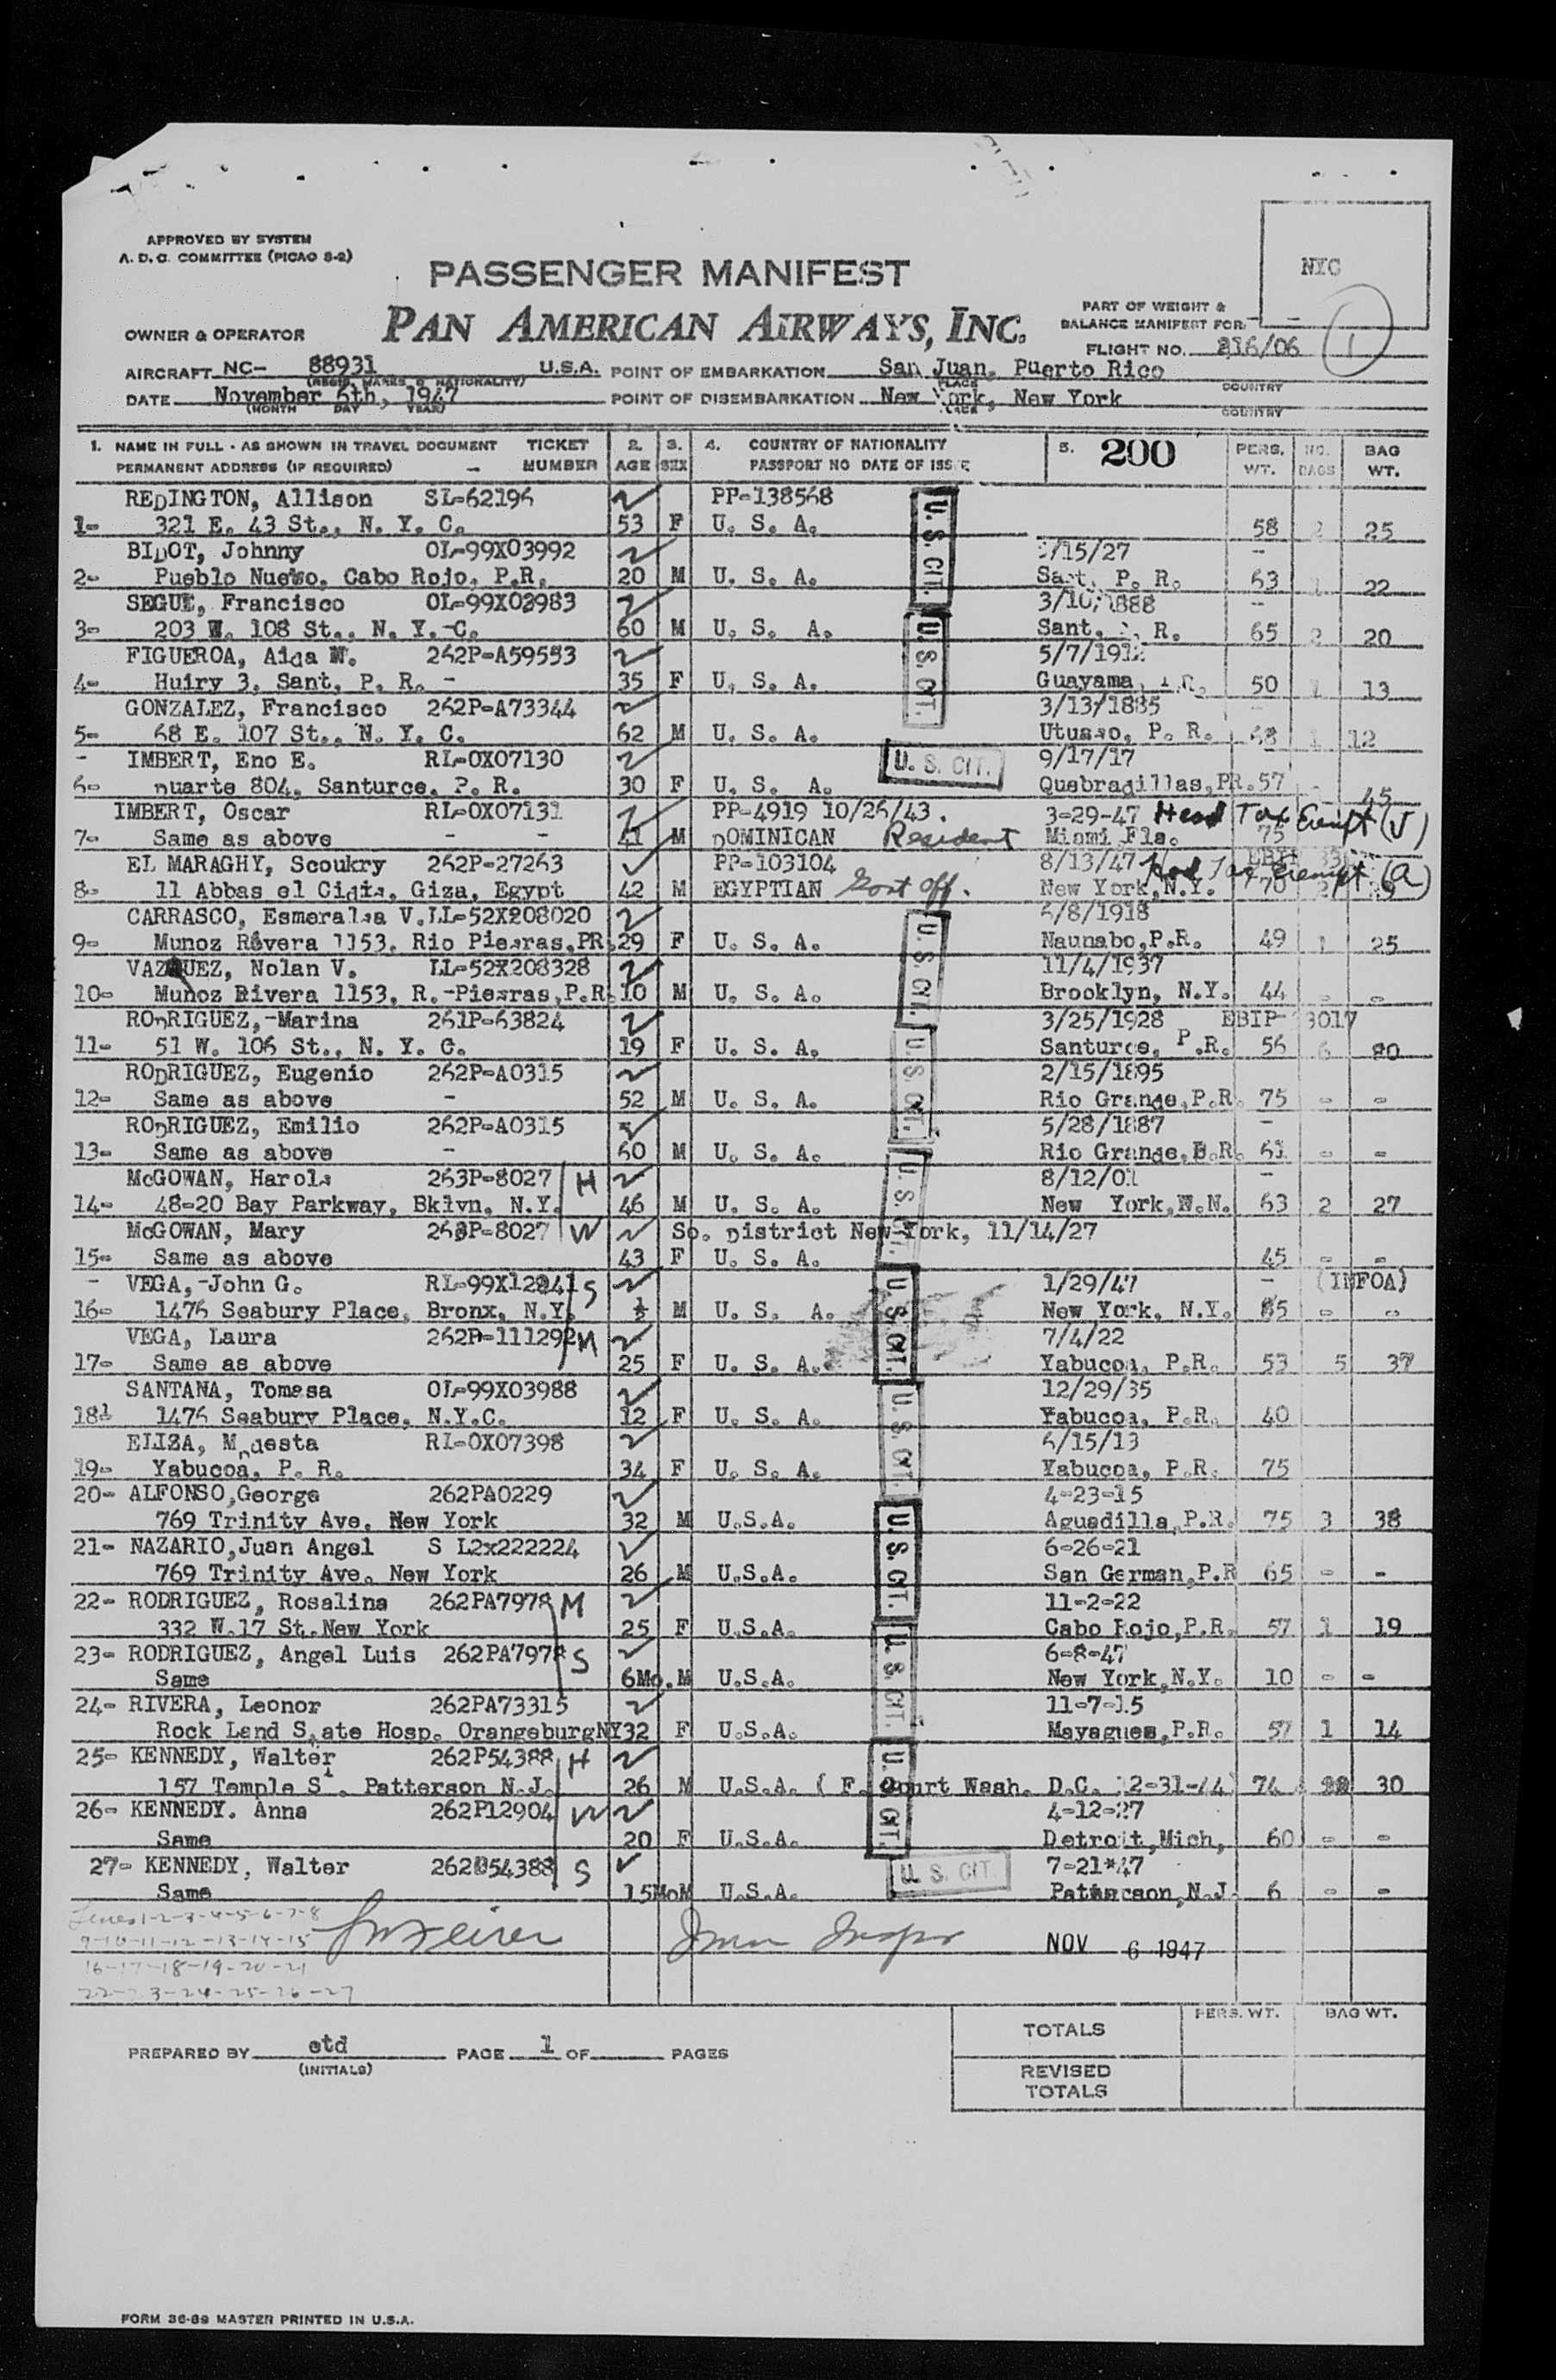 APPROVED BY SYSTEM
A. D. C. COMMITTEE (PICAO S-2)
NYC
PASSENGER MANIFEST
PAN AMERICAN AIRWAYS, INC.
PART OF WEIGHT &
BALANCE MANIFEST FOR
OWNER & OPERATOR
FLIGHT NO. 216/06 1
AIRCRAFT NC- 88931 U.S.A. POINT OF EMBARKATION San Juan, Puerto Rico
(REGIS. MARKS & NATIONALITY) PLACE COUNTRY
DATE November 6th, 1947 POINT OF DISEMBARKATION New York, New York
(MONTH DAY YEAR) PLACE COUNTRY
1. NAME IN FULL - AS SHOWN IN TRAVEL DOCUMENT TICKET 2. 3. 4. COUNTRY OF NATIONALITY 5. 200 PERS. NO. BAG
PERMANENT ADDRESS (IF REQUIRED) NUMBER AGE SEX PASSPORT NO DATE OF ISSUE WT. BAGS WT.
REDINGTON, Allison SL-62196 PP-138568
1- 321 E. 43 St., N. Y. C. 53 F U. S. A. U. S. CIT. 58 2 25
BIDOT, Johnny OL-99X03992 /15/27
2- Pueblo Nuevo, Cabo Rojo, P.R. 20 M U. S. A. Sant. P. R. 63 1 22
SEGUI, Francisco OL-99X03983 3/10/1888
3- 203 W. 108 St., N. Y. C. 60 M U. S. A. U. S. CIT. Sant. R. 65 2 20
FIGUEROA, Aida M. 262P-A59553 5/7/1912
4- Huiry 3, Sant, P. R. - 35 F U. S. A. Guayama, P.R. 50 1 13
GONZALEZ, Francisco 262P-A73344 3/13/1885
5- 68 E. 107 St., N. Y. C. 62 M U. S. A. Utuado, P. R. 68 1 12
IMBERT, Eno E. RL-OX07130 U. S. CIT. 9/17/17
6- Duarte 804, Santurce, P. R. 30 F U. S. A. Quebradillas,PR. 57 45
IMBERT, Oscar RL-OX07131 PP-4919 10/26/43. 3-29-47 Head Tax Exempt (J)
7- Same as above - - 41 M DOMINICAN Resident Miami Fla. 75
EL MARAGHY, Scoukry 262P-27263 PP-103104 8/13/47 Head Tax Exempt (a)
8- 11 Abbas el Cidia, Giza, Egypt 42 M EGYPTIAN Govt Off. New York,N.Y. 70 2 39
CARRASCO, Esmeralda V.LL-52X208020 6/8/1918
9- Munoz Rivera 1153, Rio Piedras,PR. 29 F U. S. A. U. S. CIT. Naunabo,P.R. 49 1 25
VAZQUEZ, Nolan V. LL-52X208328 11/4/1937
10- Munoz Rivera 1153, R.-Piedras,P.R. 10 M U. S. A. Brooklyn, N.Y. 44 - -
RODRIGUEZ,-Marina 261P-63824 3/25/1928 EBIP- 3017
11- 51 W. 106 St., N. Y. C. 19 F U. S. A. U. S. CIT. Santurce, P.R. 56 6 80
RODRIGUEZ, Eugenio 262P-A0315 2/15/1895
12- Same as above - 52 M U. S. A. Rio Grande,P.R. 75 - -
RODRIGUEZ, Emilio 262P-A0315 5/28/1887
13- Same as above - 60 M U. S. A. Rio Grande,P.R. 61 - -
McGOWAN, Harold 263P-8027 H 8/12/01
14- 48-20 Bay Parkway, Bklyn, N.Y. 46 M U. S. A. U. S. CIT. New York,N.N. 63 2 27
McGOWAN, Mary 263P-8027 W So. District New York, 11/14/27
15- Same as above 43 F U. S. A. 45 - -
VEGA,-John G. RL-99X12241 S 1/29/47 - (INFOA)
16- 1476 Seabury Place, Bronx, N.Y. ½ M U. S. A. U. S. CIT. New York, N.Y. 85 - -
VEGA, Laura 262P-111292 M 7/4/22
17- Same as above 25 F U. S. A. Yabucoa, P.R. 53 5 37
SANTANA, Tomasa OL-99X03988 12/29/35
18- 1476 Seabury Place, N.Y.C. 12 F U. S. A. U. S. CIT. Yabucoa, P.R. 40
ELIZA, Modesta RL-OX07398 6/15/13
19- Yabucoa, P. R. 34 F U. S. A. Yabucoa, P.R. 75
20- ALFONSO,George 262PA0229 4-23-15
769 Trinity Ave. New York 32 M U.S.A. U. S. CIT. Aguadilla,P.R. 75 3 38
21- NAZARIO,Juan Angel S L2x222224 6-26-21
769 Trinity Ave. New York 26 M U.S.A. San German,P.R 65 - -
22- RODRIGUEZ, Rosalina 262PA7978 M 11-2-22
332 W.17 St.New York 25 F U.S.A. U. S. CIT. Cabo Rojo,P.R. 57 1 19
23- RODRIGUEZ, Angel Luis 262PA7978 S 6-8-47
Same 6Mo. M U.S.A. New York,N.Y. 10 - -
24- RIVERA, Leonor 262PA73315 11-7-15
Rock Land State Hosp. OrangeburgNY 32 F U.S.A. Mayaguez,P.R. 57 1 14
25- KENNEDY, Walter 262P54388 H
157 Temple St. Patterson N.J. 26 M U.S.A. ( F. Court Wash. D.C. 12-31-44) 74 30
26- KENNEDY. Anna 262P12904 W U. S. CIT. 4-12-27
Same 20 F U.S.A. Detroit,Mich, 60 - -
27- KENNEDY, Walter 262P54388 S U. S. CIT. 7-21*47
Same 15Mo M U.S.A. Patterson,N.J. 6 - -
Lines 1-2-3-4-5-6-7-8
9-10-11-12-13-14-15 Imm Inspr NOV 6 1947
16-17-18-19-20-21
22-23-24-25-26-27
PERS. WT. BAG WT.
TOTALS
PREPARED BY etd PAGE 1 OF PAGES
(INITIALS)
REVISED
TOTALS
FORM 36-89 MASTER PRINTED IN U.S.A.